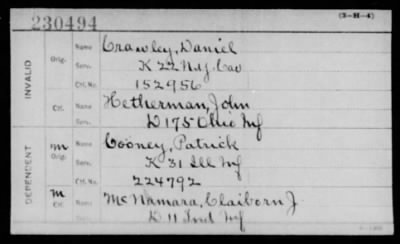 230494 (3-H-4)
INVALID
Orig. Name Crawley, Daniel
Serv. K 22 N.Y. Cav
Ctf. No. 152956
Ctf. Name Hetherman, John
Serv. D 175 Ohio Inf
DEPENDENT
m Orig. Name Cooney, Patrick
Serv. K 31 Ill Inf
Ctf. No. 224792
m Ctf. Name McNamara, Claiborn J
Serv. D 11 Ind Inf